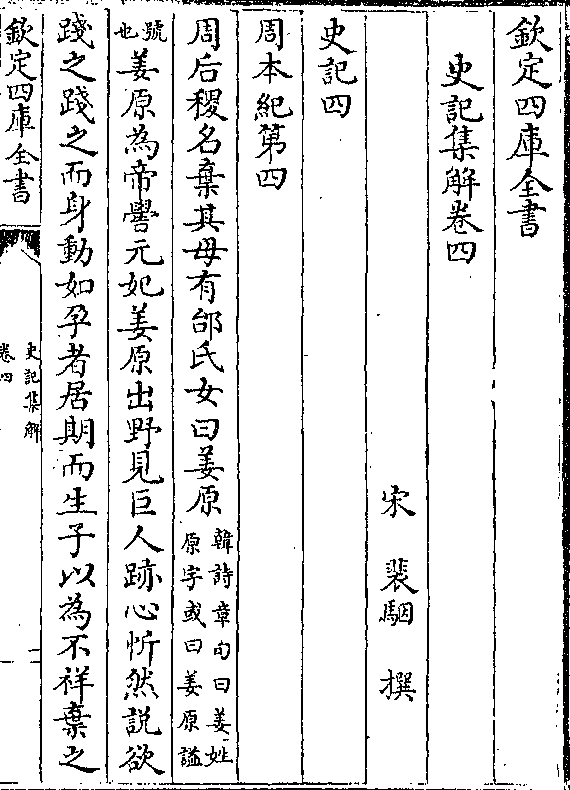 欽定四庫全書
史記集解卷四
宋 裴駰 撰
史記四
周本紀第四
周后稷名棄其母有邰氏女曰姜原韓詩章句曰姜姓原字或曰姜原謚
號也姜原為帝嚳元妃姜原出野見巨人跡心忻然說欲
踐之踐之而身動如孕者居期而生子以為不祥棄之
欽定四庫全書
史記集解
卷四
一